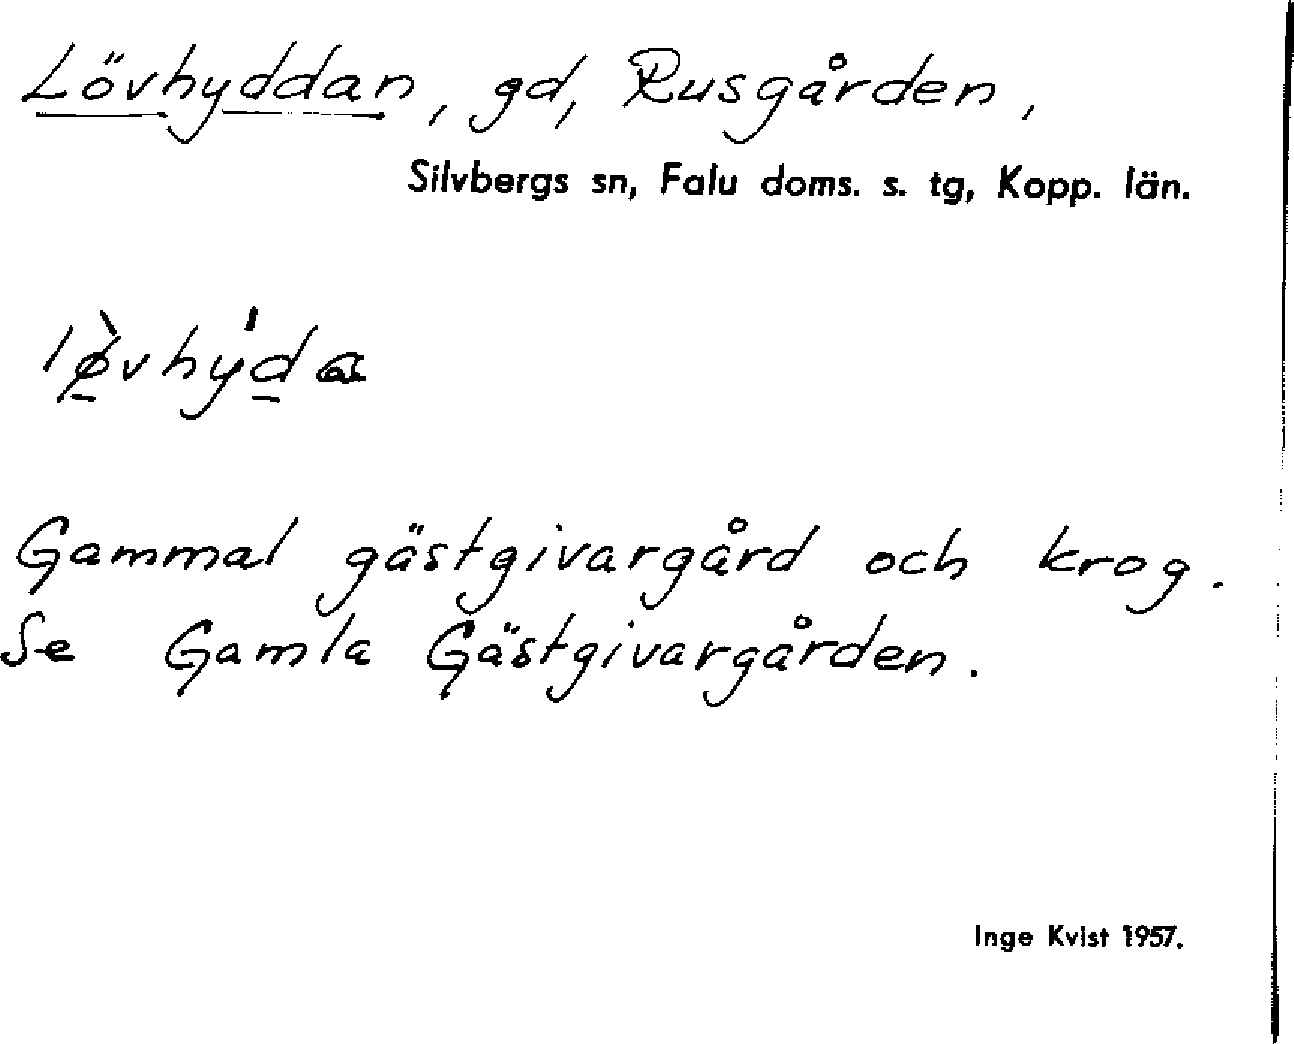 Lövhyddan, gd, Rusgården,
Silvbergs sn, Falu doms. s. tg, Kopp. län.
lø̀vhy̍da
Gammal gästgivargård och krog.
Se Gamla Gästgivargården.
Inge Kvist 1957.